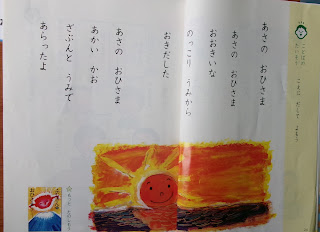 あさの　おひさま
あさの　おひさま
おおきいな
のっこり　うみから
おきだした
あさの　おひさま
あかい　かお
ざぶんと　うみで
あらったよ